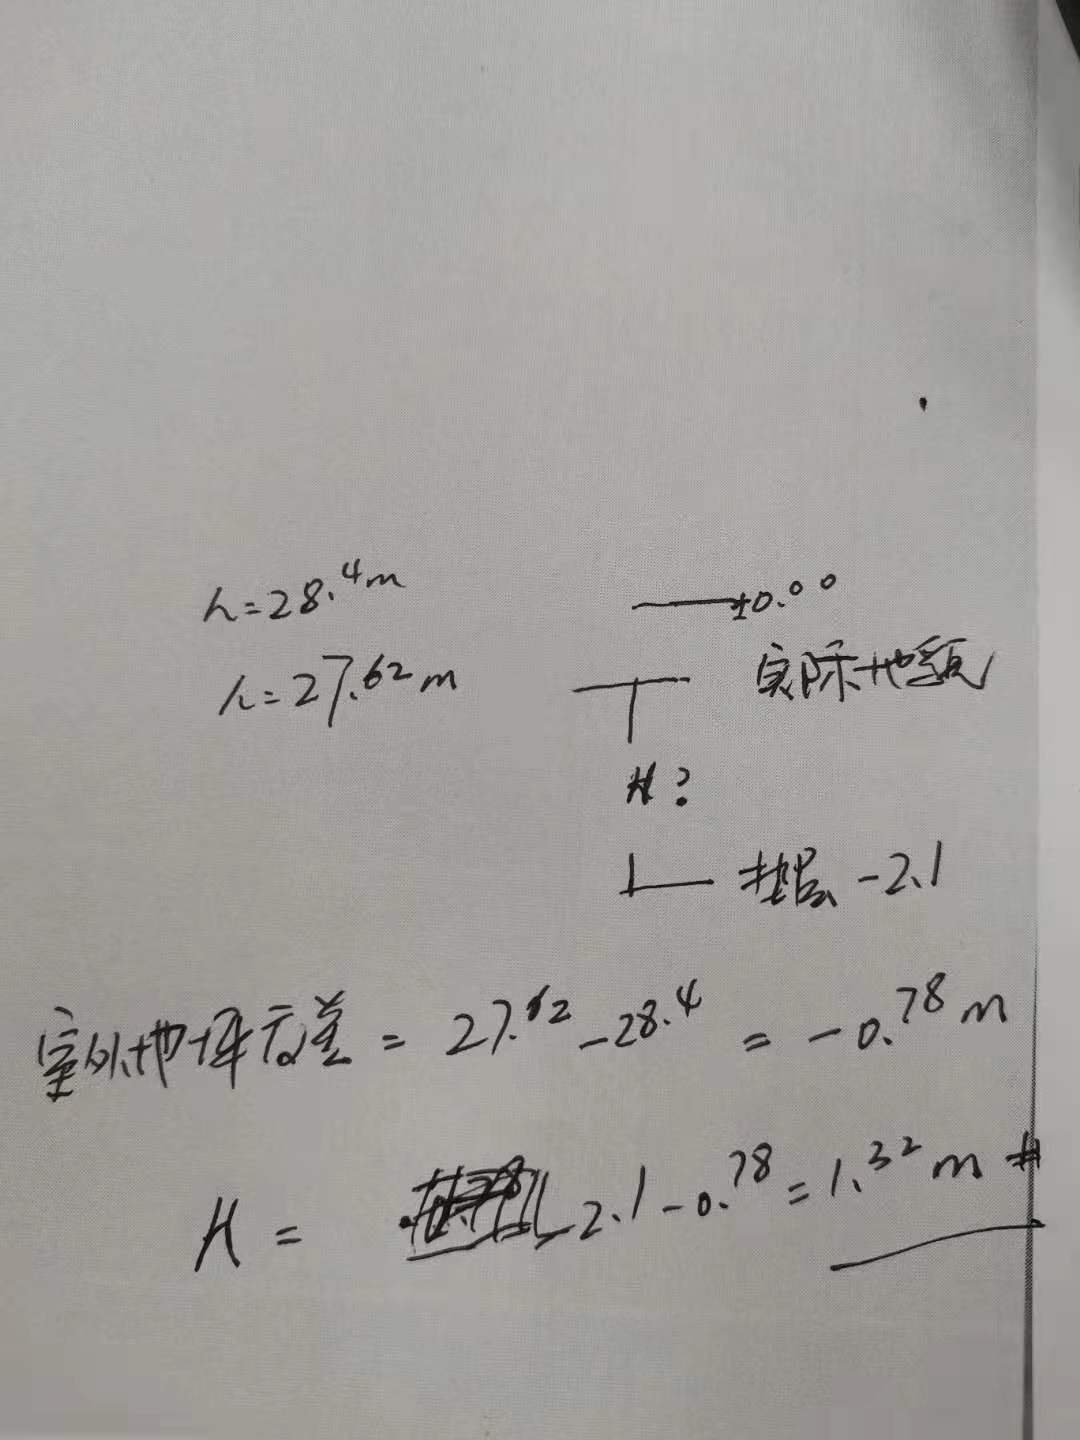 h=28.4m ±0.00
h=27.62m 实际地貌
H?
垫层 -2.1
室外地坪高差 = 27.62 -28.4 = -0.78m
H = 2.1-0.78=1.32m #